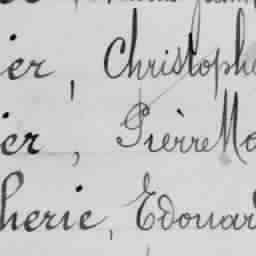 ier, Christophe
ier, Pièrre Ma
herie, Edouar